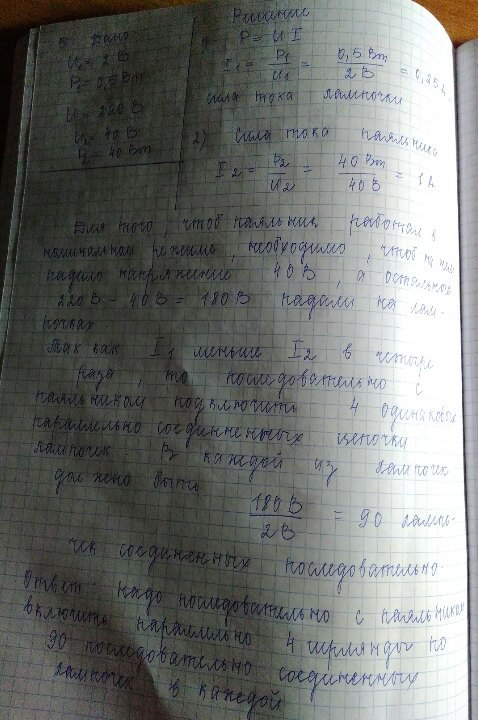 Решение
5 Дано
U₁ = 2 В
P₁ = 0,5 Вт
U = 220 В
U₂ = 40 В
P₂ = 40 Вт
1) P = U I
I₁ = P₁/U₁ = 0,5 Вт/2 В = 0,25 А
сила тока лампочки
2) Сила тока паяльника
I₂ = P₂/U₂ = 40 Вт/40 В = 1 А
Для того, чтоб паяльник работал в
номинальном режиме, необходимо, чтоб на нем
падало напряжение 40 В, а остальное
220 В - 40 В = 180 В падали на лам-
почках.
Так как I₁ меньше I₂ в четыре
раза, то последовательно с
паяльником подключить 4 одинаковых
параллельно соединенных цепочка
лампочек. В каждой из лампочек
должено быть
180 В/2 В = 90 лампо-
чек соединенных последовательно.
Ответ: надо последовательно с паяльником
включить параллельно 4 гирлянды по
90 последовательно соединенных
лампочек в каждой